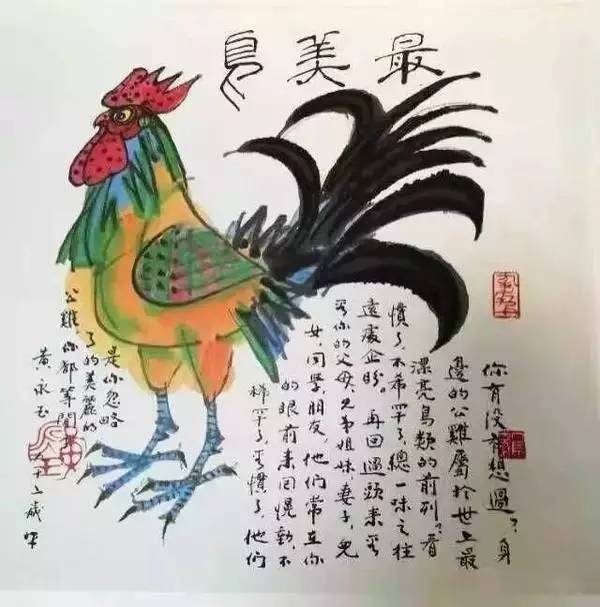 最美鳥
你有没有想過？身
邊的公雞屬於世上最
漂亮鳥類的前列，看
慣了，不希罕了，總一味之往
遠處企盼。再回過頭来看
你的父母、兄弟姐妹、妻子、兒
女、同學、朋友，他們常在你
的眼前来回慌動，不
稀罕了，看慣了，他們
是你忽略
了的美麗的
公雞，你都等閒
黄永玉
十二歲